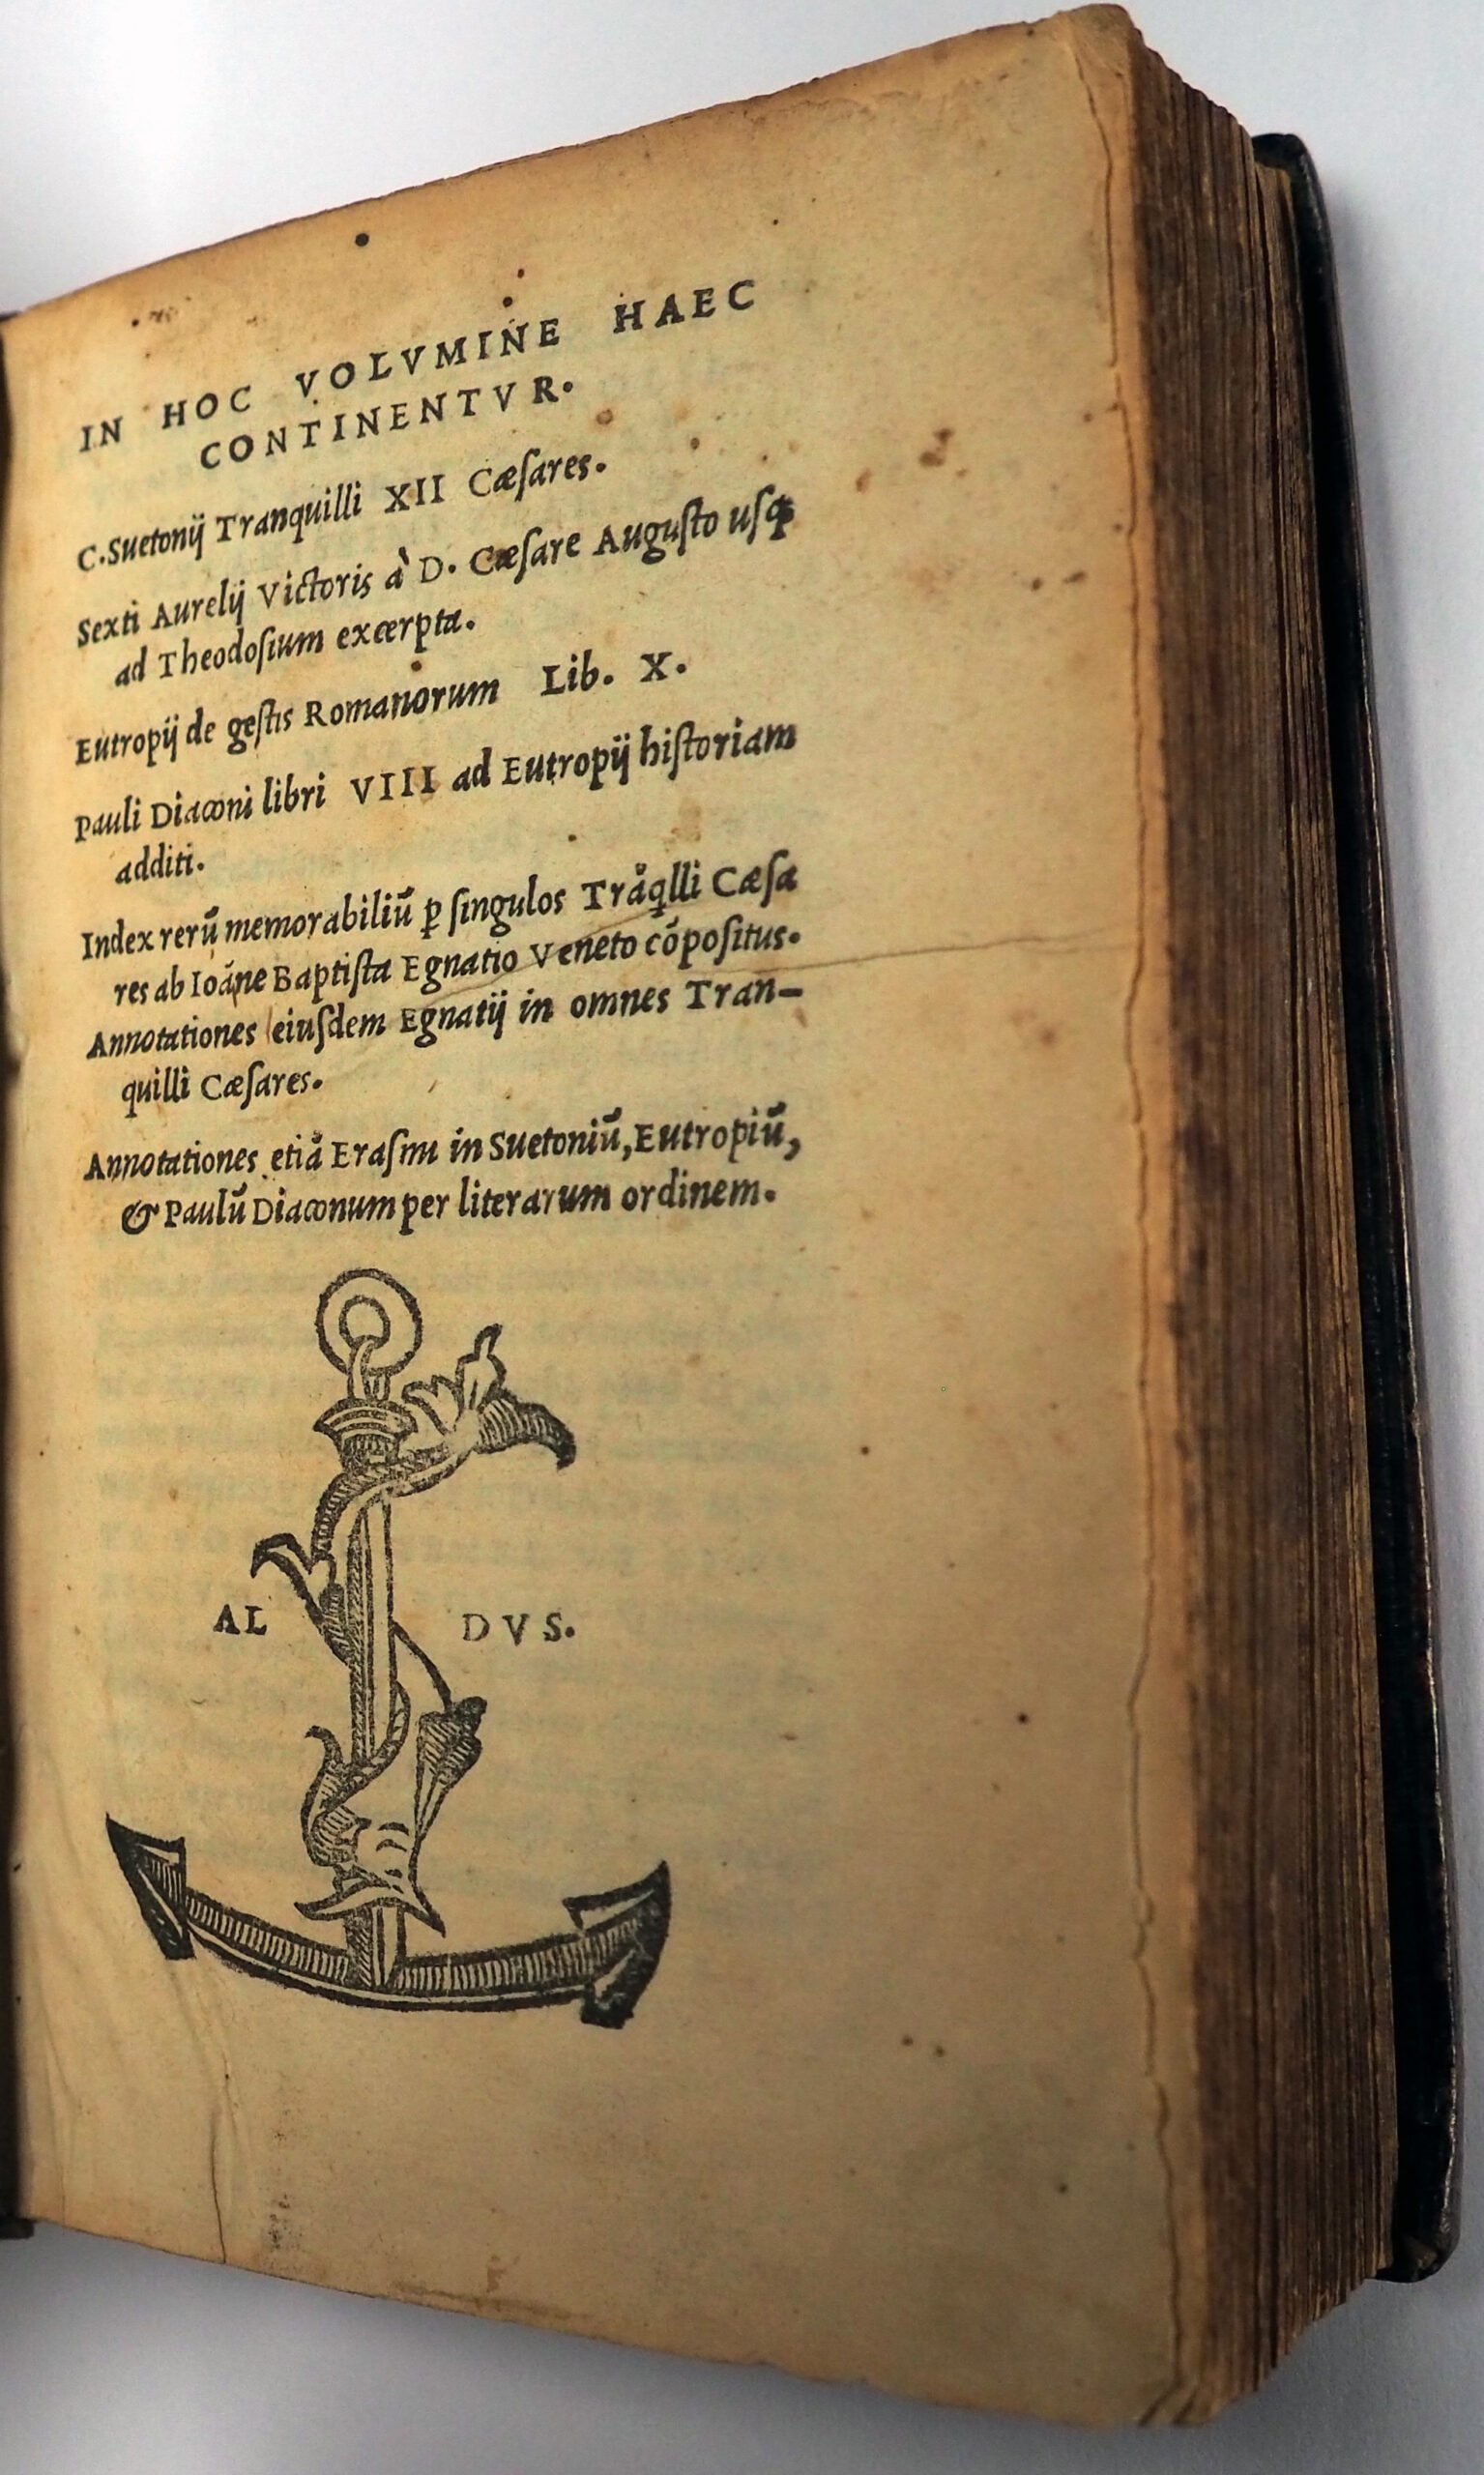 IN HOC VOLVMINE HAEC
CONTINENTVR.
C. Suetonij Tranquilli XII Cæſares.
Sexti Aurelij Victoris à D. Cæſare Auguſto uſꝗ
ad Theodoſium excerpta.
Eutropij de geſtis Romanorum Lib. X.
Pauli Diaconi libri VIII ad Eutropij hiſtoriam
additi.
Index rerū memorabiliū ꝑ ſingulos Trāqlli Cæſa
res ab Ioāne Baptiſta Egnatio Veneto cōpoſitus.
Annotationes eiuſdem Egnatij in omnes Tran-
quilli Cæſares.
Annotationes etiā Eraſmi in Suetoniū, Eutropiū,
& Paulū Diaconum per literarum ordinem.
AL DVS.